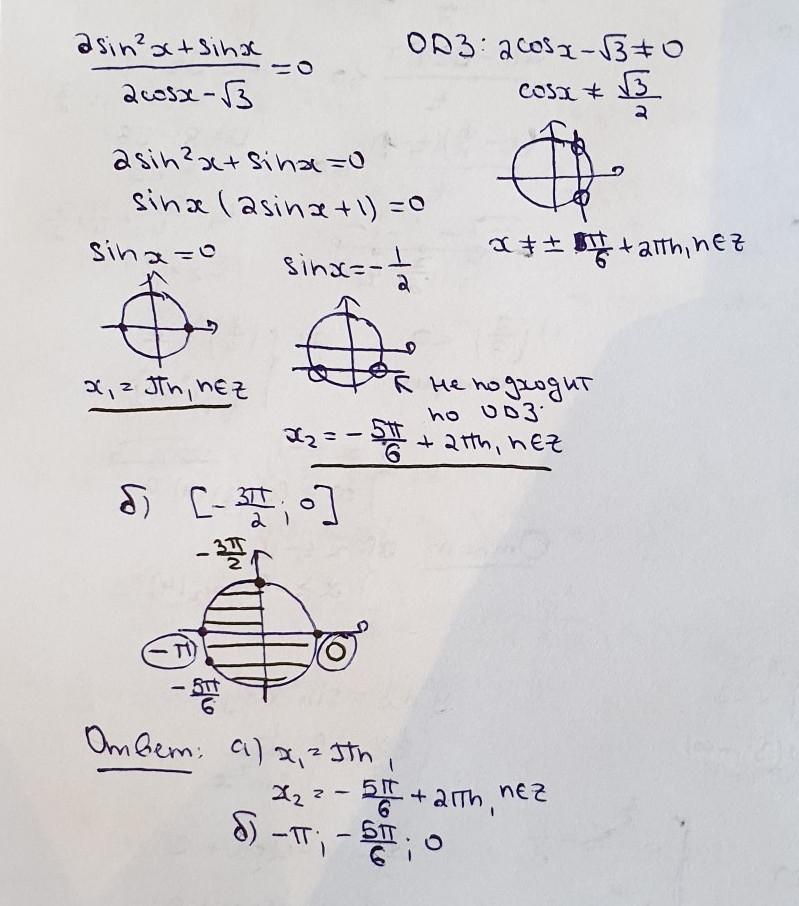 2sin²x + sinx / 2cosx - √3 = 0
ОДЗ: 2cosx - √3 ≠ 0
cosx ≠ √3/2
x ≠ ± π/6 + 2πn, n∈Z
2sin²x + sinx = 0
sinx (2sinx + 1) = 0
sinx = 0
x₁ = πn, n∈Z
sinx = -1/2
не подходит
по ОДЗ.
x₂ = -5π/6 + 2πn, n∈Z
б) [-3π/2; 0]
-3π/2
-π
0
-5π/6
Ответ: а) x₁ = πn,
x₂ = -5π/6 + 2πn, n∈Z
б) -π; -5π/6; 0